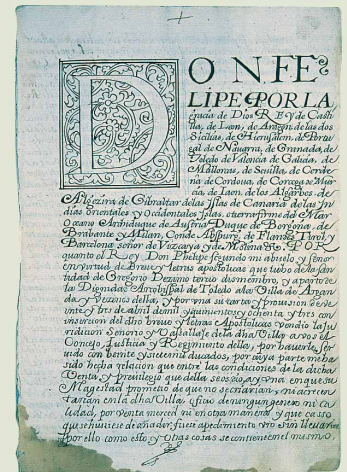 DON FE
LIPE POR LA
gracia de Dios REY de Casti
lla, de Leon, de Aragon, de las dos
Sicilias, de Hierusalem, de Portu
gal de Nauarra, de Granada, de
Toledo de Valencia de Galicia, de
Mallorcas, de Seuilla, de Cerde
na de Cordoua, de Corcega de Mur
cia, de Iaen, de los Algarbes de
Algezira de Gibraltar de las Islas de Canaria de las In
dias orientales y Occidentales Islas, tierra firme del Mar
Oceano Archiduque de Austria Duque de Borgoña, de
Brabante y Milan, Conde de Flandes Tirol y
Barcelona señor de Vizcaya y de Molina & POR
quanto el Rey Don Phelipe segundo mi abuelo y señor
en virtud de Breue y letras apostolicas que tubo de la san
tidad de Gregorio Dezimo tercio desmembro, y aparto de
la Dignidad Arçobispal de Toledo la Villa de Argan
da y vezinos della, y por vna su carta y prouision de ve
inte y tres de abril de mil y quinientos y ochenta y tres con
insercion del dho breue y letras Apostolicas vendio la Ju
ridicion Señorio y Vasallaje de la dha Villa a vos el
Concejo Justicia y Regimiento della, por hauerle, ser
uido con beinte y siete mil ducados, por cuya parte me ha
sido hecha relacion que entre las condiciones de la dicha
Venta, y preuilegio que della se os dio, ay vna en que su
Magestad prometio de que no se criarian y ni acrecen
tarian en la dha Villa, oficio de ningun genero ni ca
lidad, por venta merced ni en otra manera y que caso
que se huuiese de añadir, fuese a pedimiento vro sin lleuaros
por ello como esto y otras cosas se contiene en el mismo